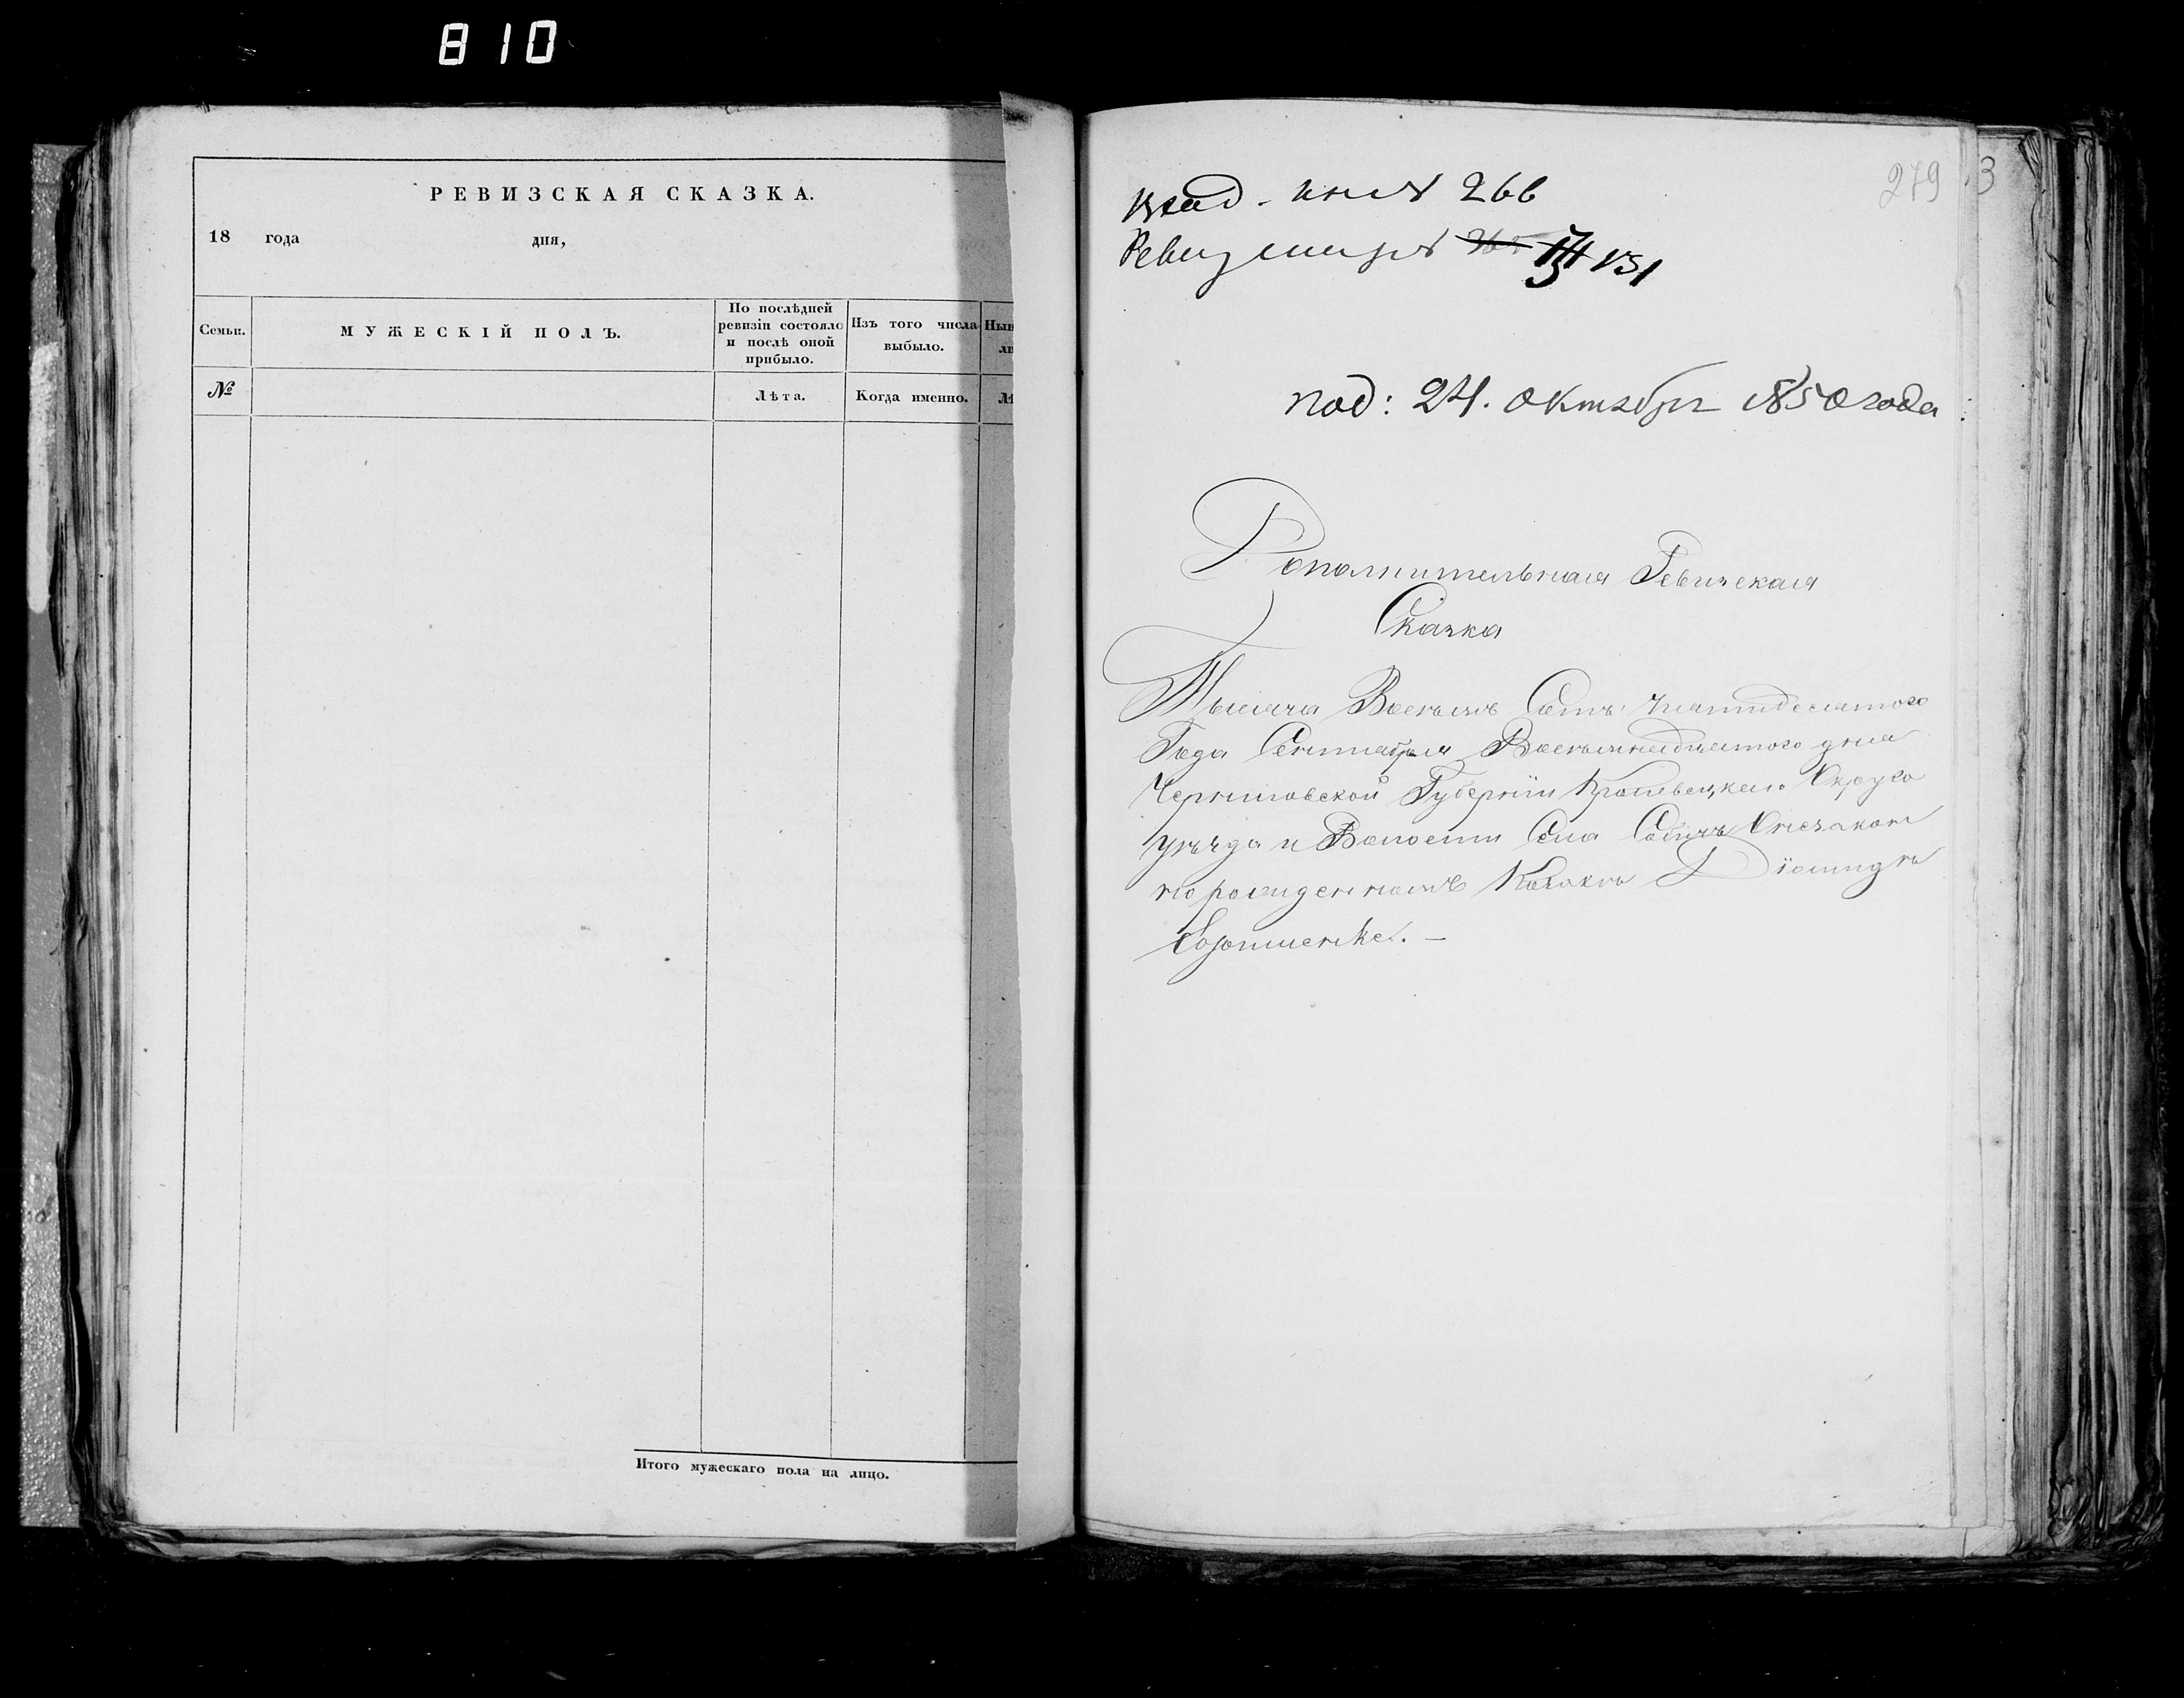 810
РЕВИЗСКАЯ СКАЗКА.
18 года дня,
Семьи.
МУЖЕСКІЙ ПОЛЪ.
По послѣдней ревизіи состояло и послѣ оной прибыло.
Изъ того числа выбыло.
№
Лѣта.
Когда именно.
Итого мужескаго пола на лицо.
279
3
266
131
под: 24. октября 1850 года
Дополнительная Ревизская
Сказка
Тысяча Восемь Сотъ пятидесятого
Года Сентября Восемнадцатого дня
Черниговской Губерніи Кролевецкаго Округа
уѣзда и Волости Села
Козакѣ